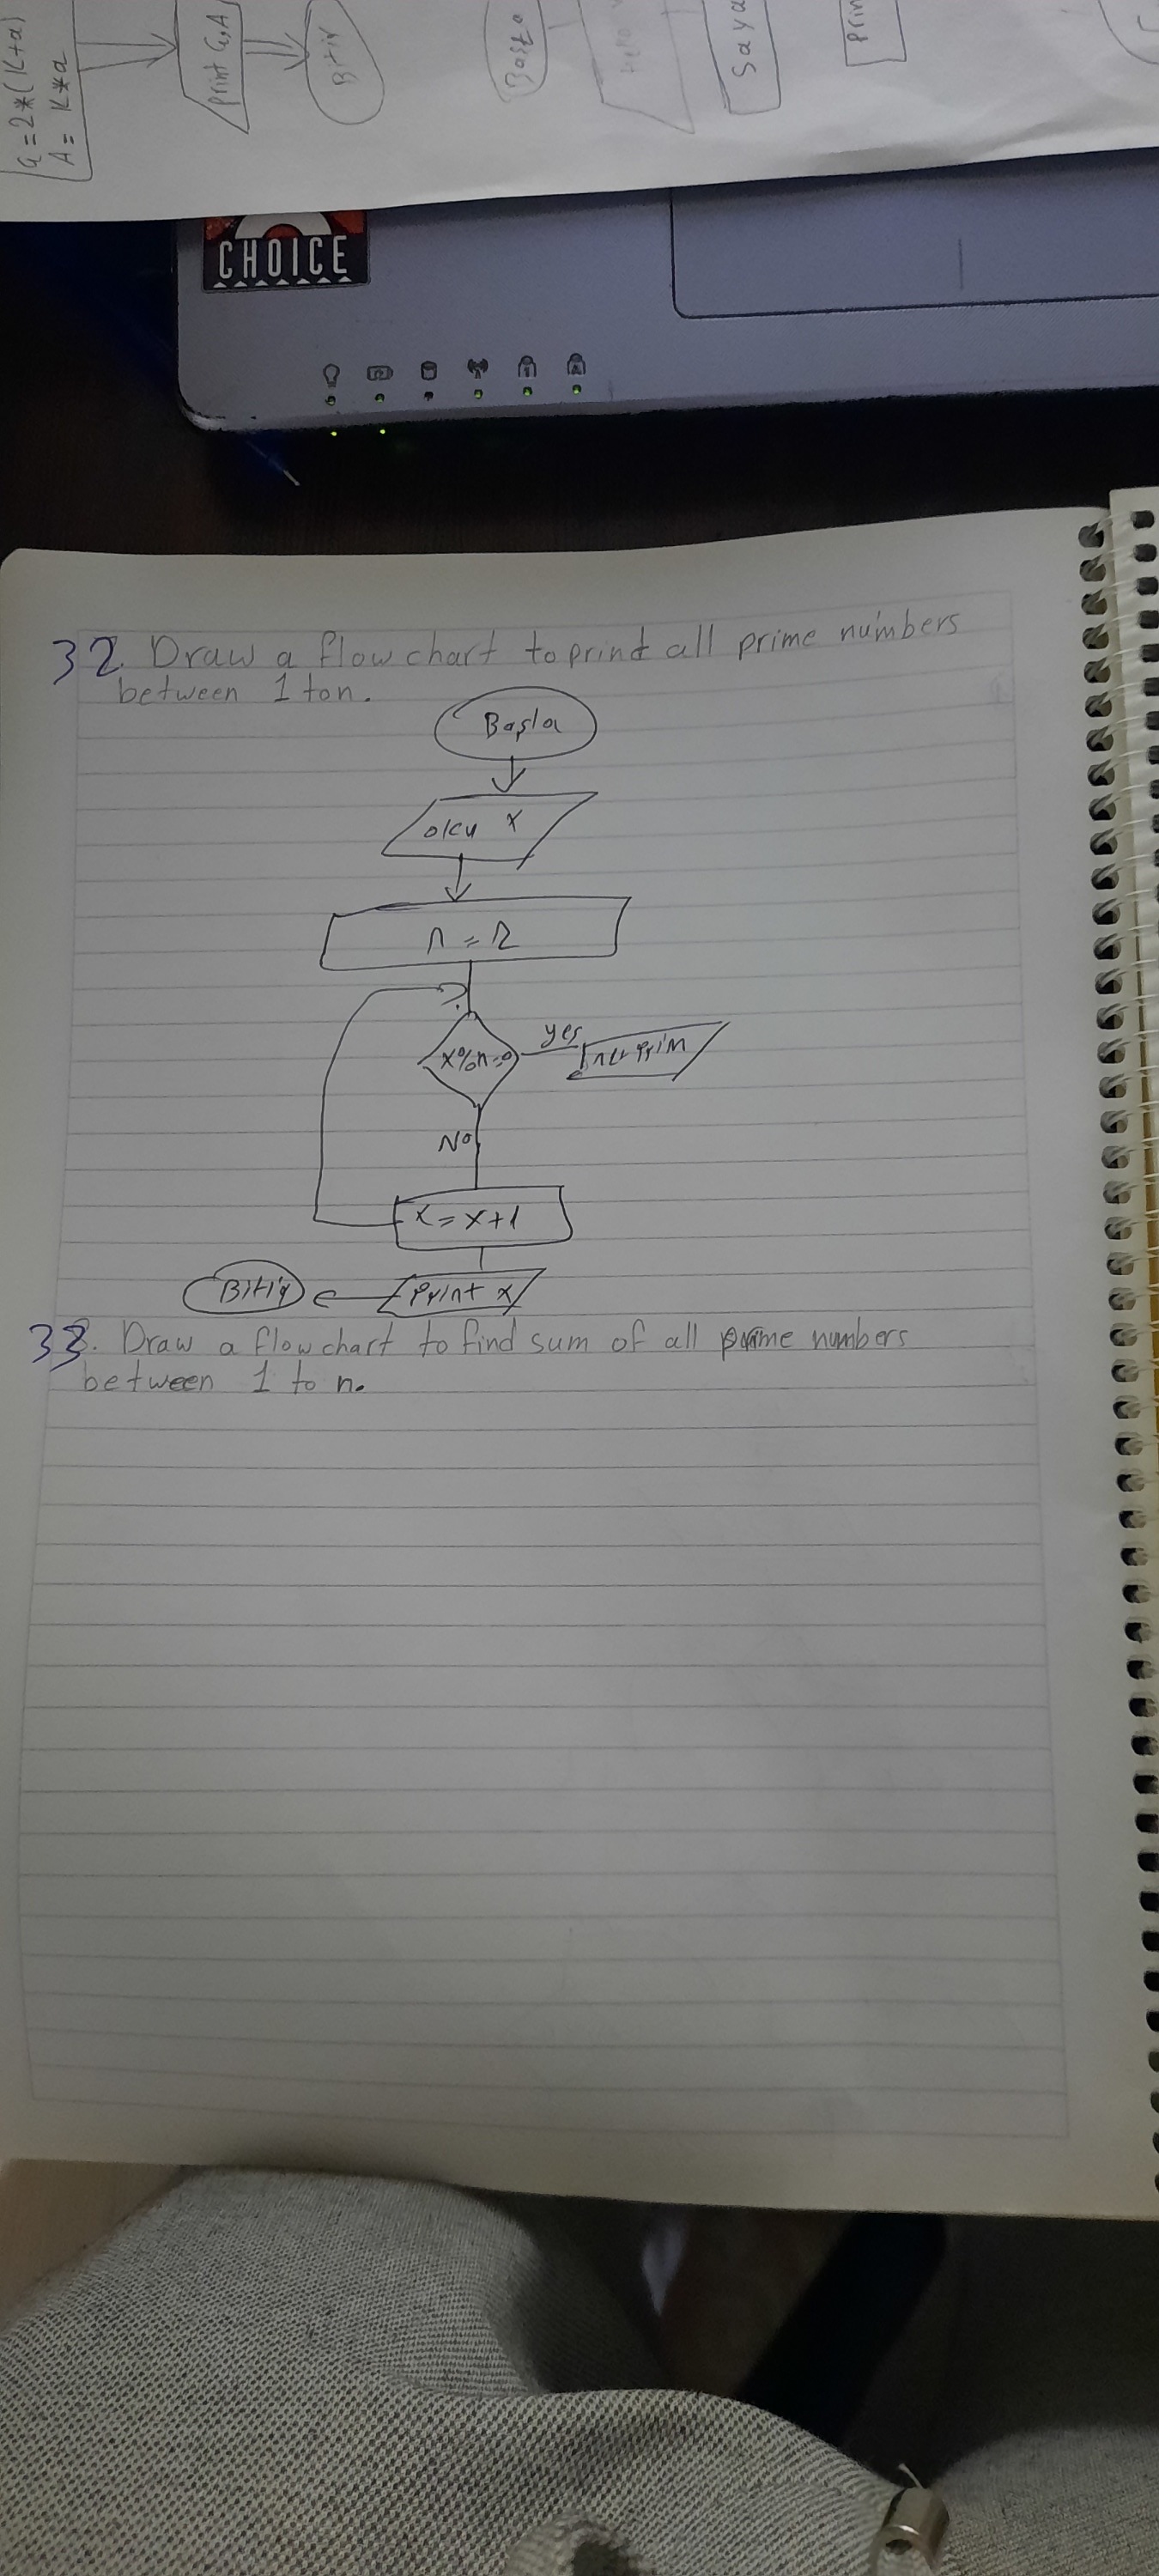 G=2*(K+a)
A= K*a
Print G,A
Bitir
Başla
Saya
Prin
CHOICE
32. Draw a flow chart to print all prime numbers
between 1 to n.
Başla
oku x
n = 2
x%n=0
yes
not Prim
No
x = x+1
Print x
Bitir
33. Draw a flow chart to find sum of all prime numbers
between 1 to n.